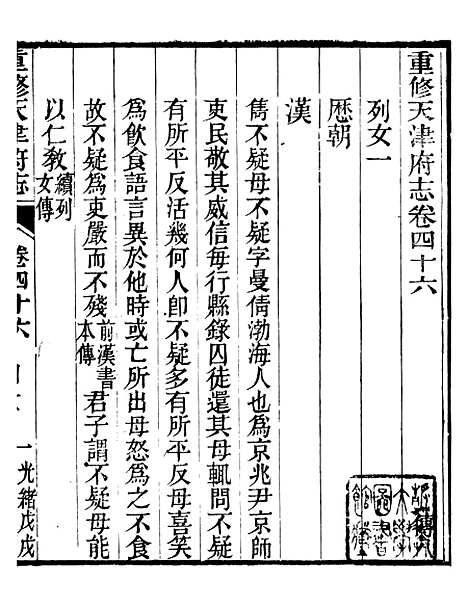 重修天津府志卷四十六
列女一
歷朝
漢
雋不疑母不疑字曼倩渤海人也爲京兆尹京師
吏民敬其威信每行縣錄囚徒還其母輒問不疑
有所平反活幾何人卽不疑多有所平反母喜笑
爲飲食語言異於他時或亡所出母怒爲之不食
故不疑爲吏嚴而不殘前漢書本傳君子謂不疑母能
以仁敎續列女傳
重修天津府志
卷四十六
一
光緒戊戌